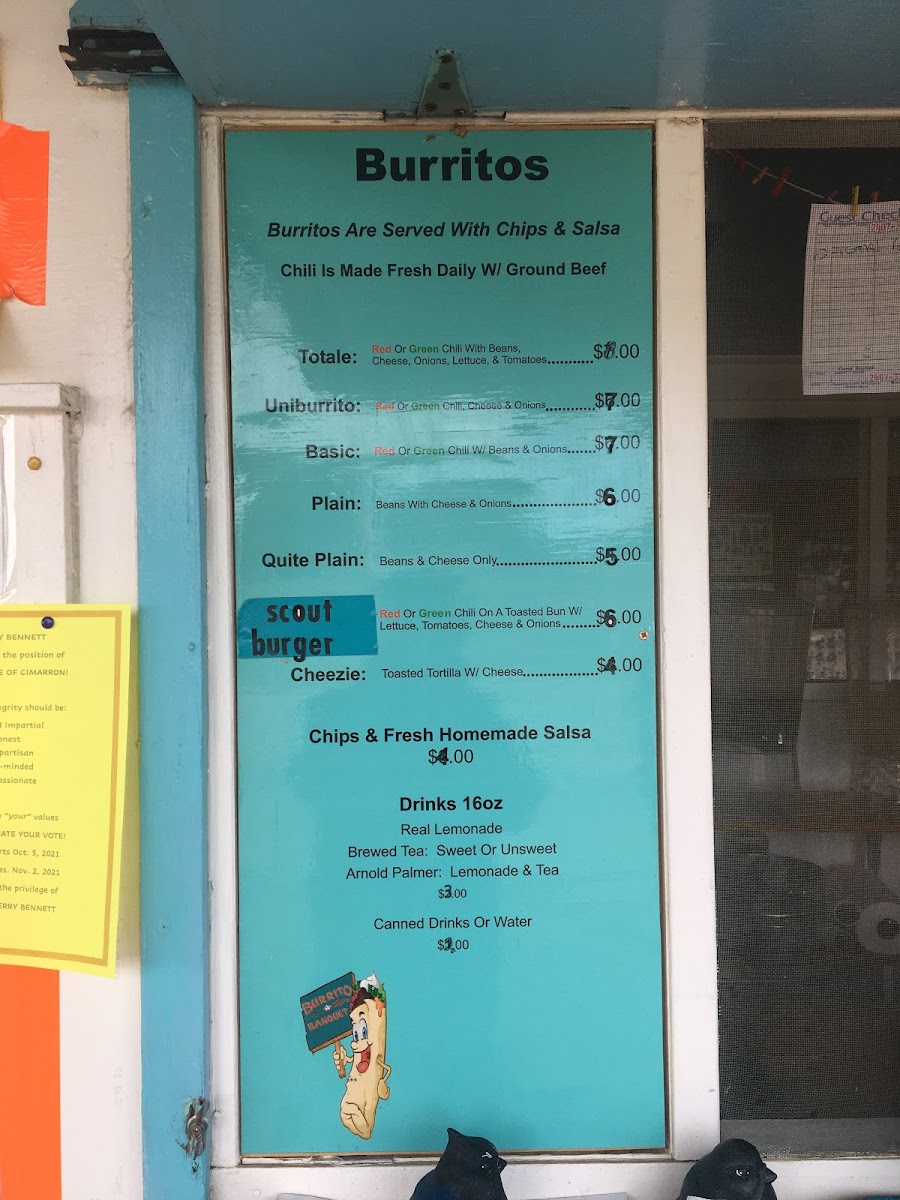 Burritos
Burritos Are Served With Chips & Salsa
Chili Is Made Fresh Daily W/ Ground Beef
Totale: Red Or Green Chili With Beans,
Cheese, Onions, Lettuce, & Tomatoes...........$8.00
Uniburrito: Red Or Green Chili, Cheese & Onions............$7.00
Basic: Red Or Green Chili W/ Beans & Onions.......$7.00
Plain: Beans With Cheese & Onions....................$6.00
Quite Plain: Beans & Cheese Only........................$5.00
scout
burger
Red Or Green Chili On A Toasted Bun W/
Lettuce, Tomatoes, Cheese & Onions........$6.00
Cheezie: Toasted Tortilla W/ Cheese..................$4.00
Chips & Fresh Homemade Salsa
$4.00
Drinks 16oz
Real Lemonade
Brewed Tea: Sweet Or Unsweet
Arnold Palmer: Lemonade & Tea
$3.00
Canned Drinks Or Water
BURRITO
BANQUET
Guest Check
Y BENNETT
the position of
E OF CIMARRON!
egrity should be:
Impartial
onest
partisan
-minded
assionate
"your" values
ATE YOUR VOTE!
rts Oct. 5, 2021
es. Nov. 2, 2021
the privilege of
ERRY BENNETT